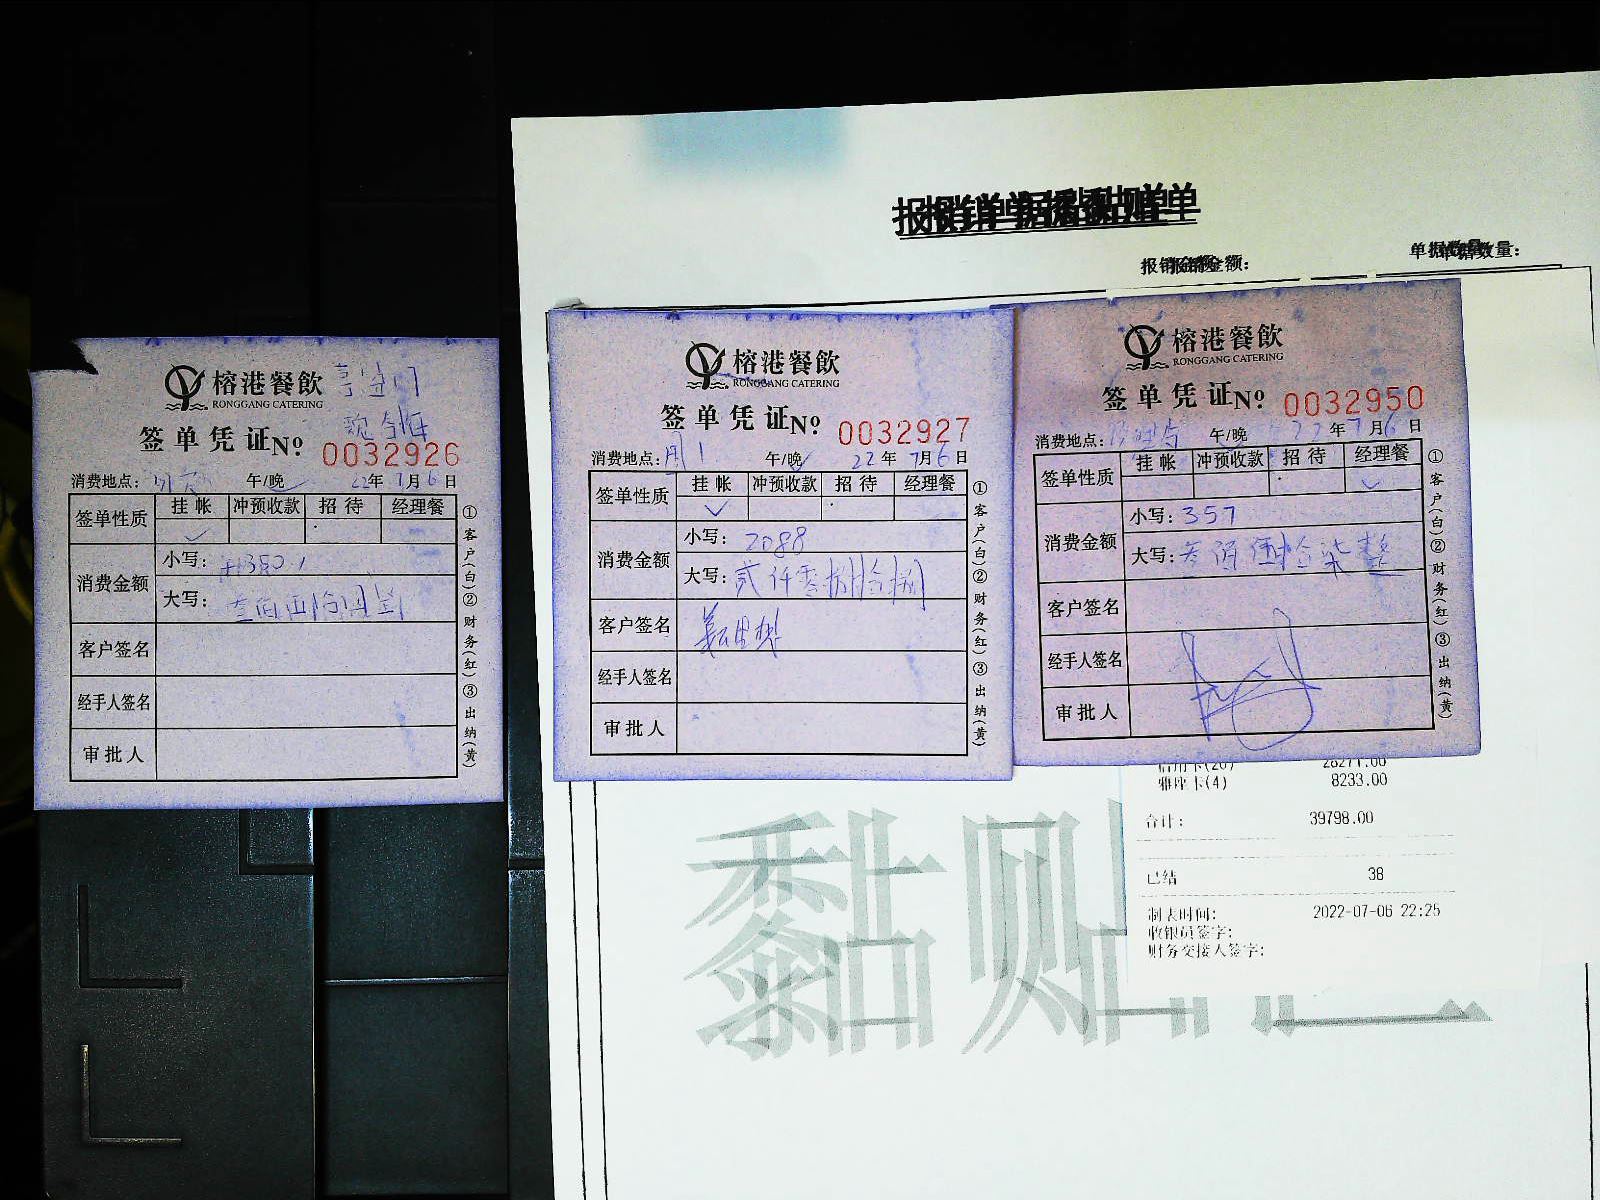 报销单据粘贴单
报销金额：
单据数量：
榕港餐飲
RONGGANG CATERING
签单凭证 No. 0032926
消费地点： 午/晚 22年7月6日
签单性质 挂帐 冲预收款 招待 经理餐
消费金额
小写：
大写：
客户签名
经手人签名
审批人
①客户(白)②财务(红)③出纳(黄)
榕港餐飲
RONGGANG CATERING
签单凭证 No. 0032927
消费地点： 午/晚 22年7月6日
签单性质 挂帐 冲预收款 招待 经理餐
消费金额
小写：2088
大写：贰仟零捌拾捌
客户签名
经手人签名
审批人
①客户(白)②财务(红)③出纳(黄)
榕港餐飲
RONGGANG CATERING
签单凭证 No. 0032950
消费地点： 午/晚 22年7月6日
签单性质 挂帐 冲预收款 招待 经理餐
消费金额
小写：357
大写：叁佰伍拾柒整
客户签名
经手人签名
审批人
①客户(白)②财务(红)③出纳(黄)
雅座卡(4) 8233.00
合计： 39798.00
已结 38
制表时间： 2022-07-06 22:25
收银员签字：
财务交接人签字：
黏贴